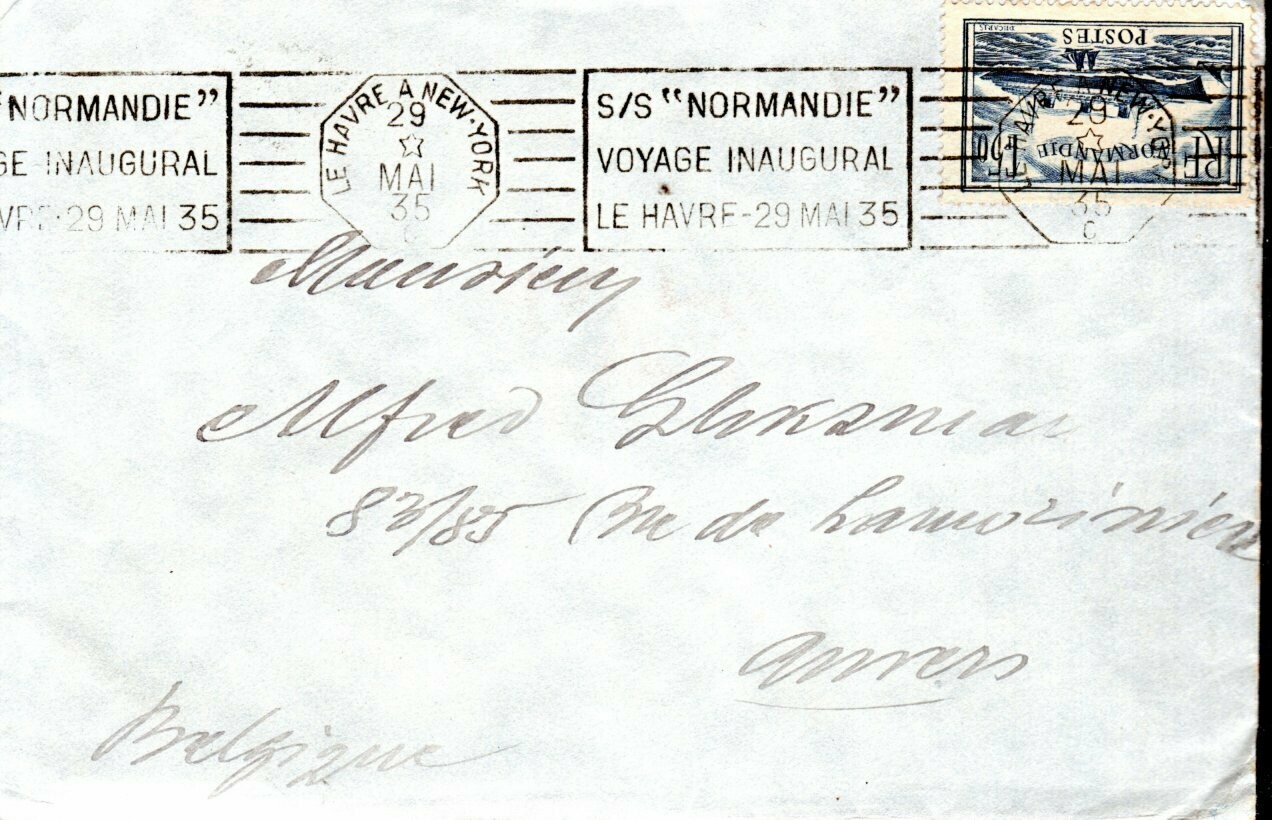 "NORMANDIE"
GE INAUGURAL
VRE-29 MAI 35
LE HAVRE A NEW-YORK
29
MAI
35
C
S/S "NORMANDIE"
VOYAGE INAUGURAL
LE HAVRE-29 MAI 35
LE HAVRE A NEW-YORK
29
MAI
35
C
POSTES
DECARIS
NORMANDIE
RF
1F50
Monsieur
Alfred
83/85 Rue de Lamorinière
Anvers
Belgique